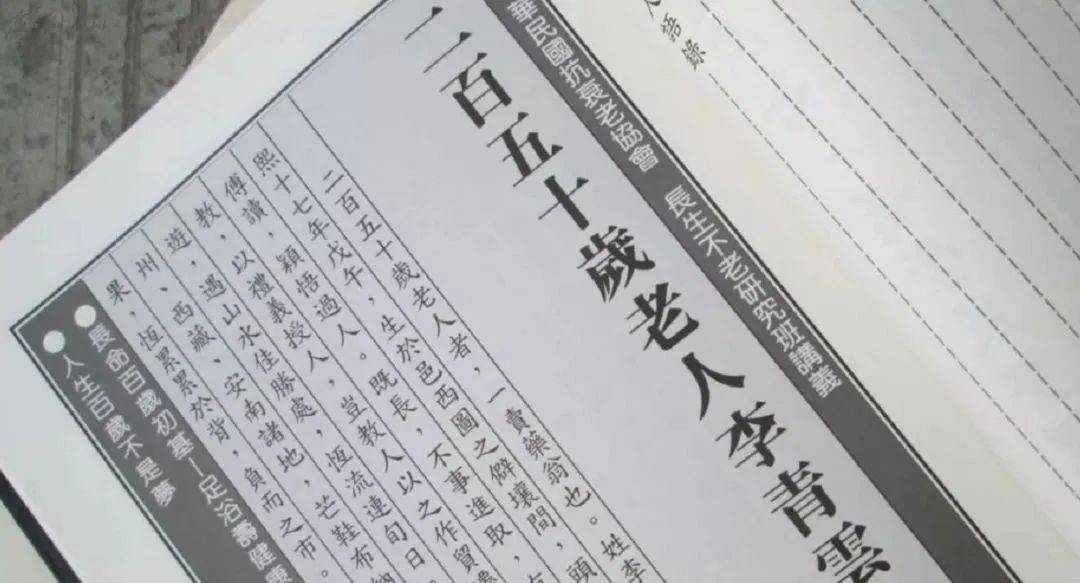 人語錄
華民國抗衰老協會 長生不老研究班講義
二百五十歲老人李青雲
二百五十歲老人者，一賣藥翁也。姓李
熙十七年戊午，生於邑西圖之僻壤間，
傅讀，穎悟過人。既長，不事進取，
教，以禮義授人，豈教人以之作貿
遊，遇山水佳勝處，恆流連旬日
州、西藏、安南諸地，芒鞋布衲
果，恆累累於背，負而之市。
●長命百歲初基—足浴壽健康
●人生百歲不是夢